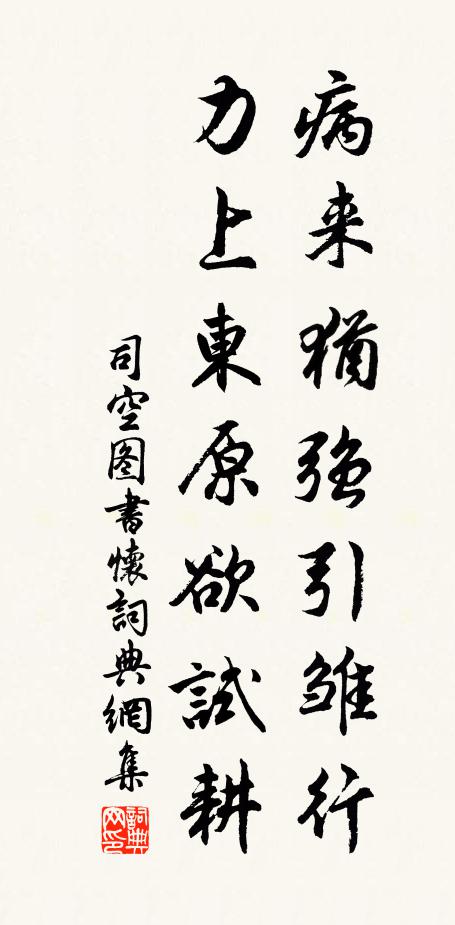 病来猶強引雏行
力上東原欲試耕
司空图書懷詞典網集
詞典网印